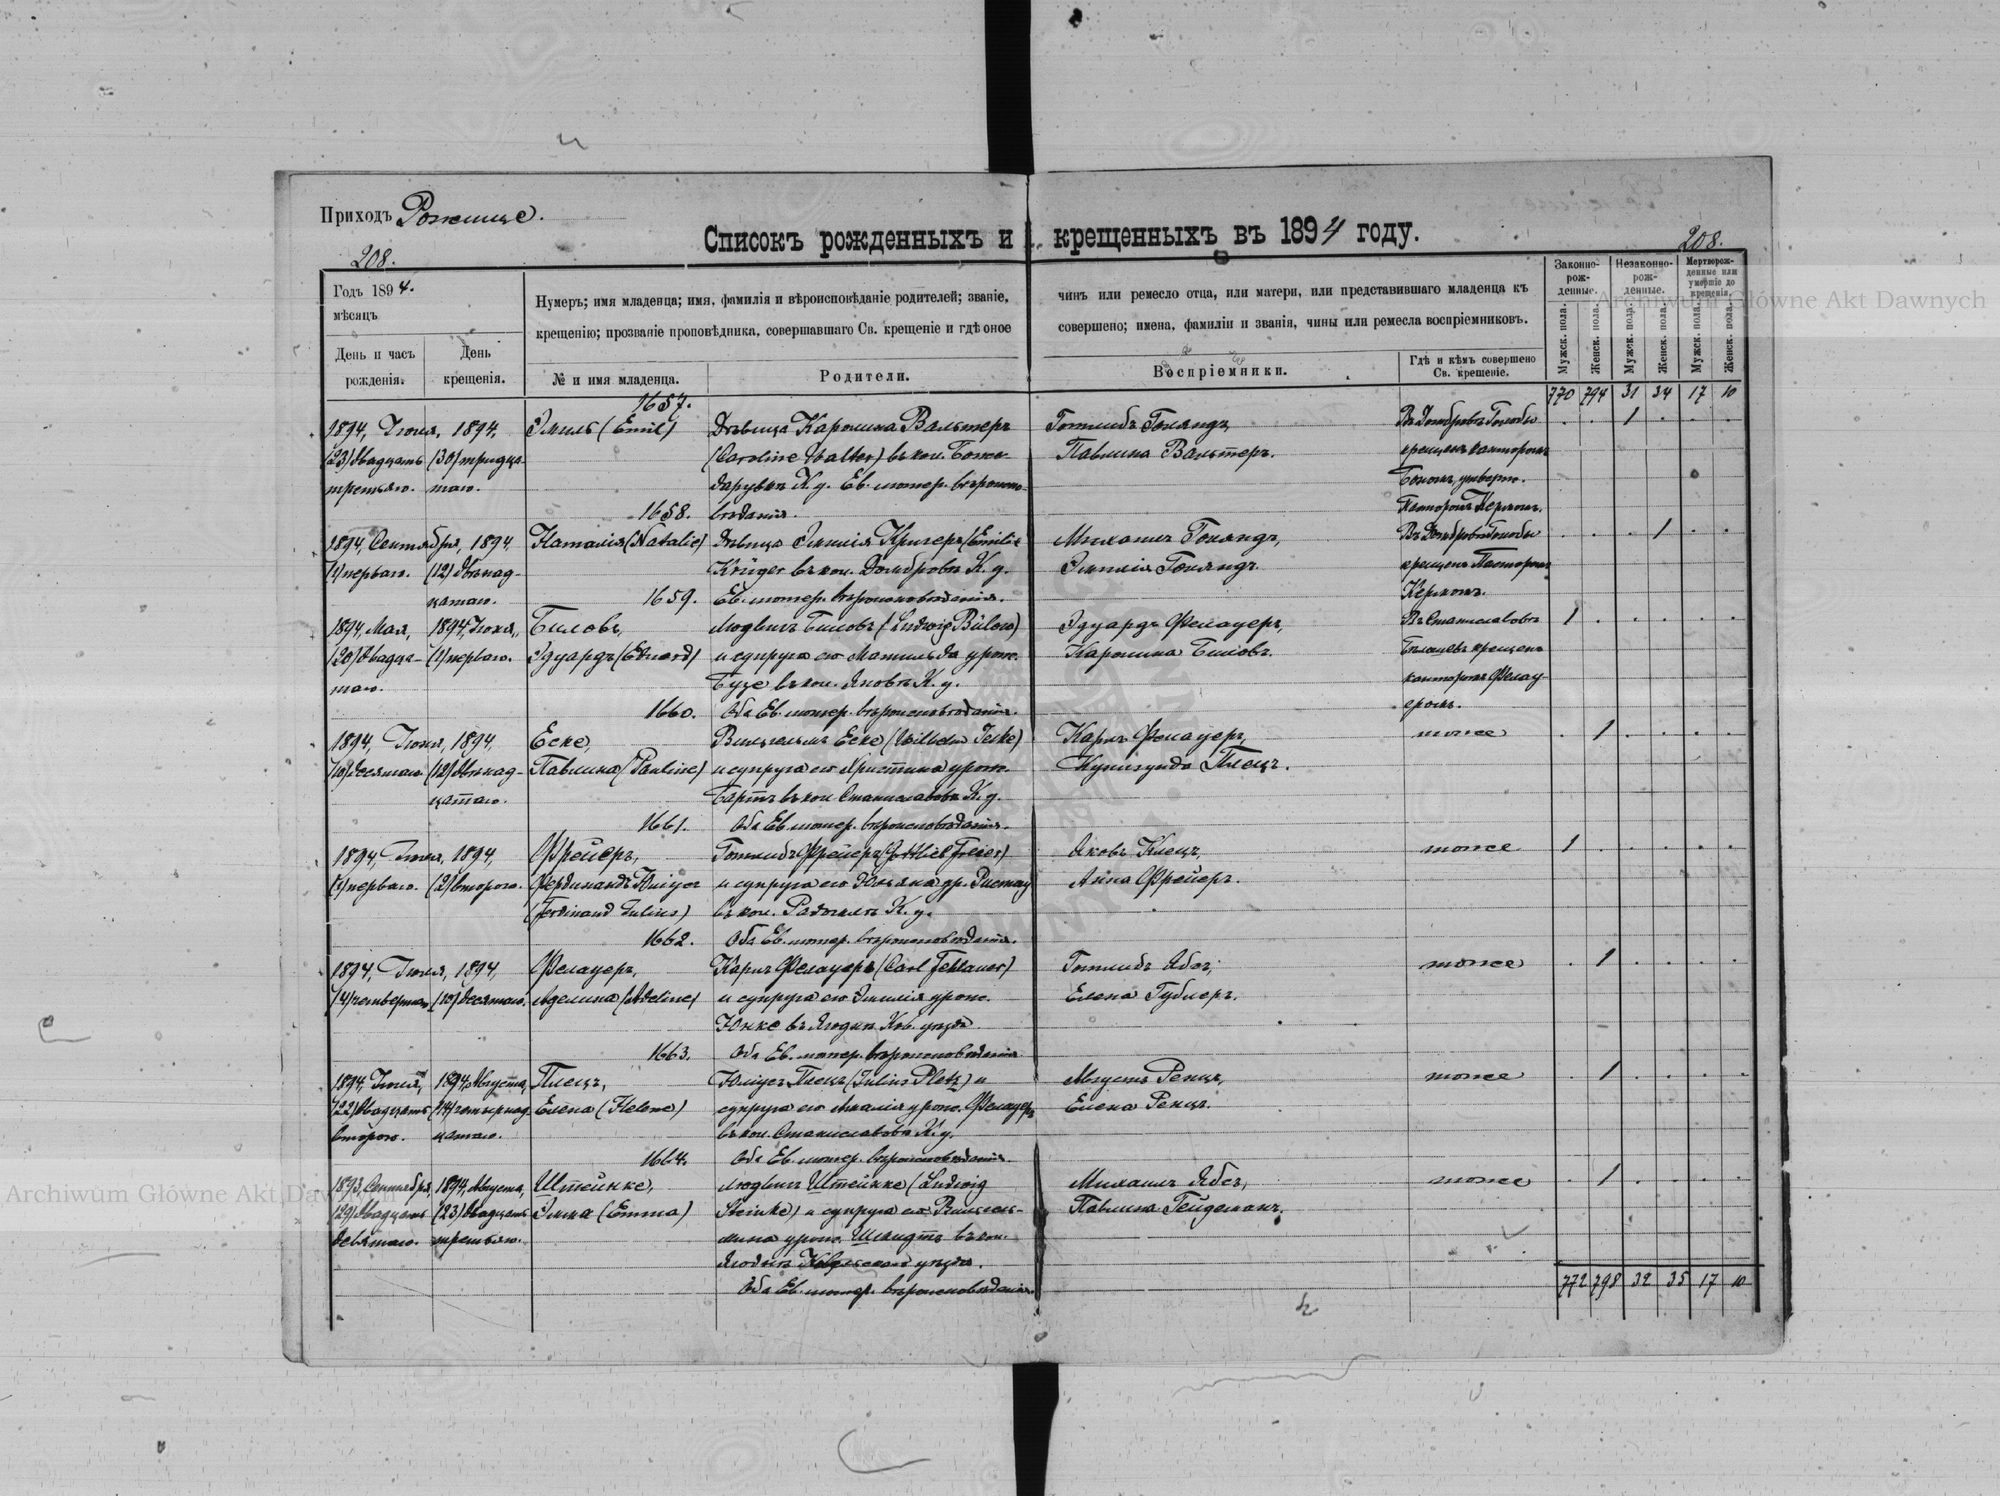 Приходъ Рожище.
Списокъ рожденныхъ и крещенныхъ въ 1894 году.
208.
208.
Годъ 1894.
мѣсяцъ
День и часъ рожденія.
День крещенія.
Нумеръ; имя младенца; имя, фамилія и вѣроисповѣданіе родителей; званіе, чинъ или ремесло отца, или матери, или представившаго младенца къ
крещенію; прозваніе проповѣдника, совершавшаго Св. крещеніе и гдѣ оное совершено; имена, фамиліи и званія, чины или ремесла воспріемниковъ.
№ и имя младенца.
Родители.
Воспріемники.
Гдѣ и кѣмъ совершено Св. крещеніе.
Законно-рож-денные.
Незаконно-рож-денные.
Мертворож-денные или умершіе до крещенія.
Мужск. пола.
Женск. пола.
Мужск. пола.
Женск. пола.
Мужск. пола.
Женск. пола.
770 794 31 34 17 10
1657.
1894, Іюля, 1894, Эмиль (Emil) Дѣвица Каролина Вальтеръ Готлибъ Голяндъ, 1
(23) двадцать (30) тридца- (Caroline Walter) въ кол. Божи- Павлина Вальтеръ. крещенъ канторомъ
третьяго. таго. даровкѣ К. у. Ев. лютер. вѣроиспо-
1658. вѣданія. Пасторомъ Керномъ.
1894, Сентября, 1894, Наталія (Natalie) Дѣвица Эмилія Кригеръ (Emilie Михаилъ Голяндъ, 1
(1) перваго. (12) двѣнад- Krüger въ кол. Домбровѣ К. у. Эмилія Голяндъ крещенъ Пасторомъ
цатаго. 1659. Ев. лютер. вѣроисповѣданія. Керномъ.
1894, Мая, 1894, Іюня, Биловъ, Людвигъ Биловъ (Ludwig Bülow) Эдуардъ Фелауеръ, Въ Станиславовкѣ 1
(20) двадца- (1) перваго. Эдуардъ (Eduard) и супруга его Матильда урож. Каролина Биловъ. крещенъ
таго. Бузе въ кол. Яновкѣ К. у. канторомъ Фелау-
1660. Оба Ев. лютер. вѣроисповѣданія. еромъ.
1894, Іюня, 1894, Еске, Вильгельмъ Еске (Wilhelm Jeske) Карлъ Фелауеръ, тоже 1
(10) десятаго (12) двѣнад- Павлина (Pauline) и супруга его Христина урож. Кунигунда Плецъ.
цатаго. Бартъ въ кол. Станиславовкѣ К. у.
1661. Оба Ев. лютер. вѣроисповѣданія.
1894, Іюля, 1894, Фрейеръ, Готлибъ Фрейеръ (Gottlieb Freier) Яковъ Клецъ, тоже 1
(1) перваго. (2) второго. Фердинандъ Юліусъ и супруга его Юльяна ур. Анна Фрейеръ.
(Ferdinand Julius) въ кол. К. у.
1662. Оба Ев. лютер. вѣроисповѣданія.
1894, Іюля, 1894 Фелауеръ, Карлъ Фелауеръ (Carl Fehlauer) Готлибъ Ябсъ, тоже 1
(4) четвертаго (10) десятаго. Аделина (Adeline) и супруга его Эмилія урож. Елена Гублеръ.
Юнке въ Ягодинѣ Ков. уѣзда
1663. Оба Ев. лютер. вѣроисповѣданія
1894, Іюля, 1894, Августа, Плецъ, Юліусъ Плецъ (Julius Pletz) и Августъ Ренцъ, тоже 1
(22) двадцать (14) четырнад- Елена (Helene) супруга его Амалія урож. Фелауеръ Елена Ренцъ.
второго. цатаго. въ кол. Станиславовкѣ К. у.
1664. Оба Ев. лютер. вѣроисповѣданія.
1893, Сентября, 1894, Августа, Штейнке, Людвигъ Штейнке (Ludwig Михаилъ Ябсъ, тоже 1
(29) двадцать (23) двадцать Эмма (Emma) Steinke) и супруга его Вильгель- Павлина Гейдеманъ.
девятаго. третьяго. мина урож. Шмидтъ въ кол.
Ягодинѣ Ковельскаго уѣзда.
Оба Ев. лютер. вѣроисповѣданія.
772 798 32 35 17 10
Archiwum Główne Akt Dawnych
Archiwum Główne Akt Dawnych